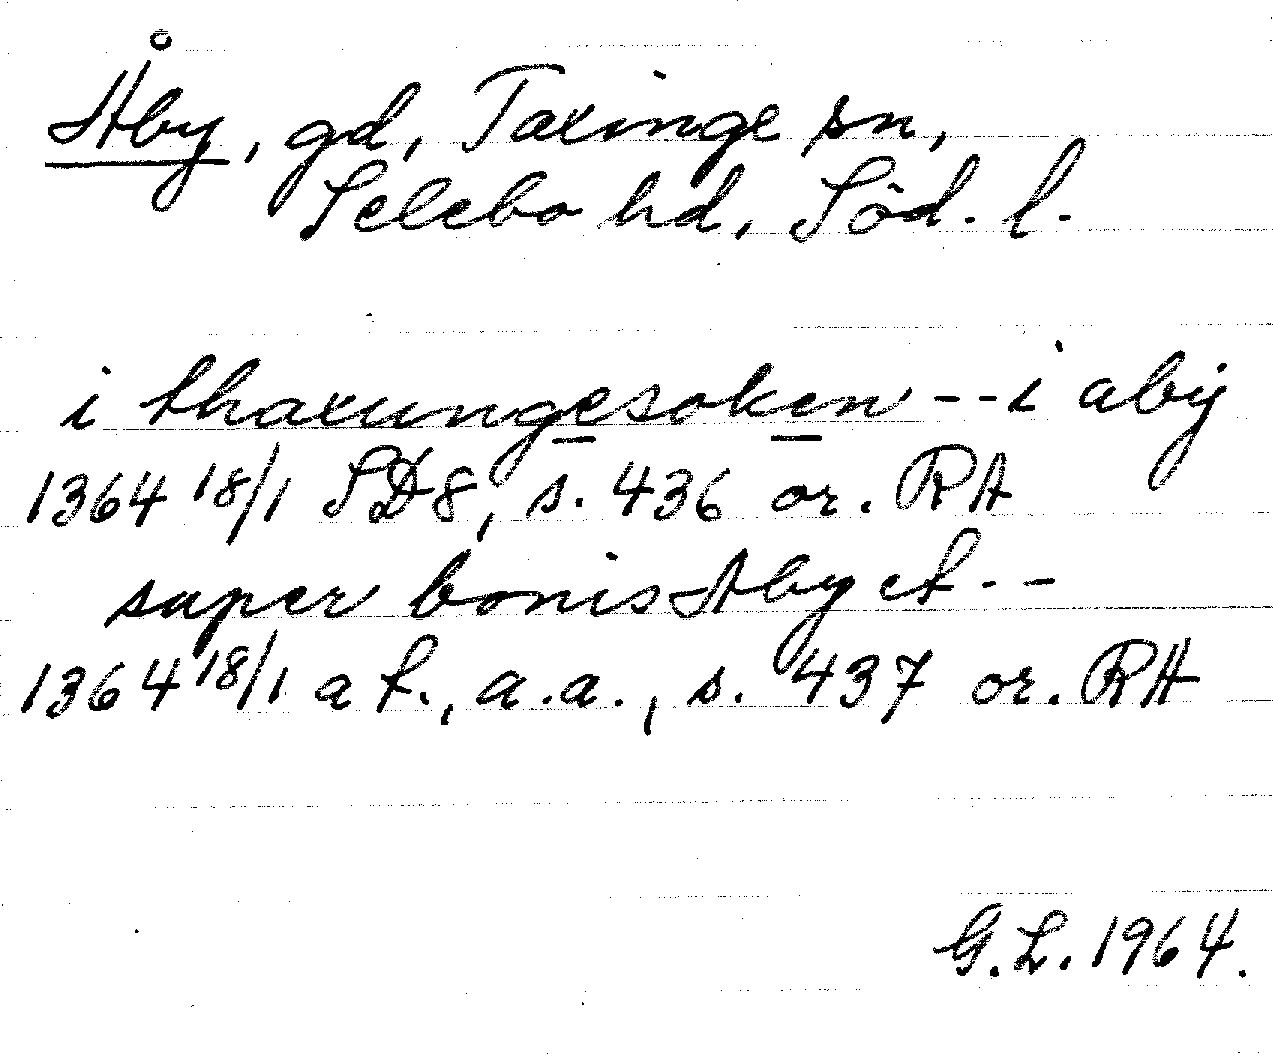 Åby, gd, Taxinge sn,
Selebo hd, Söd. l.
i thaxungesoken -- i abÿ
1364 18/1 SD8, s. 436 or. RA
super bonis Aby et --
1364 18/1 at., a.a., s. 437 or. RA
G.L. 1964.